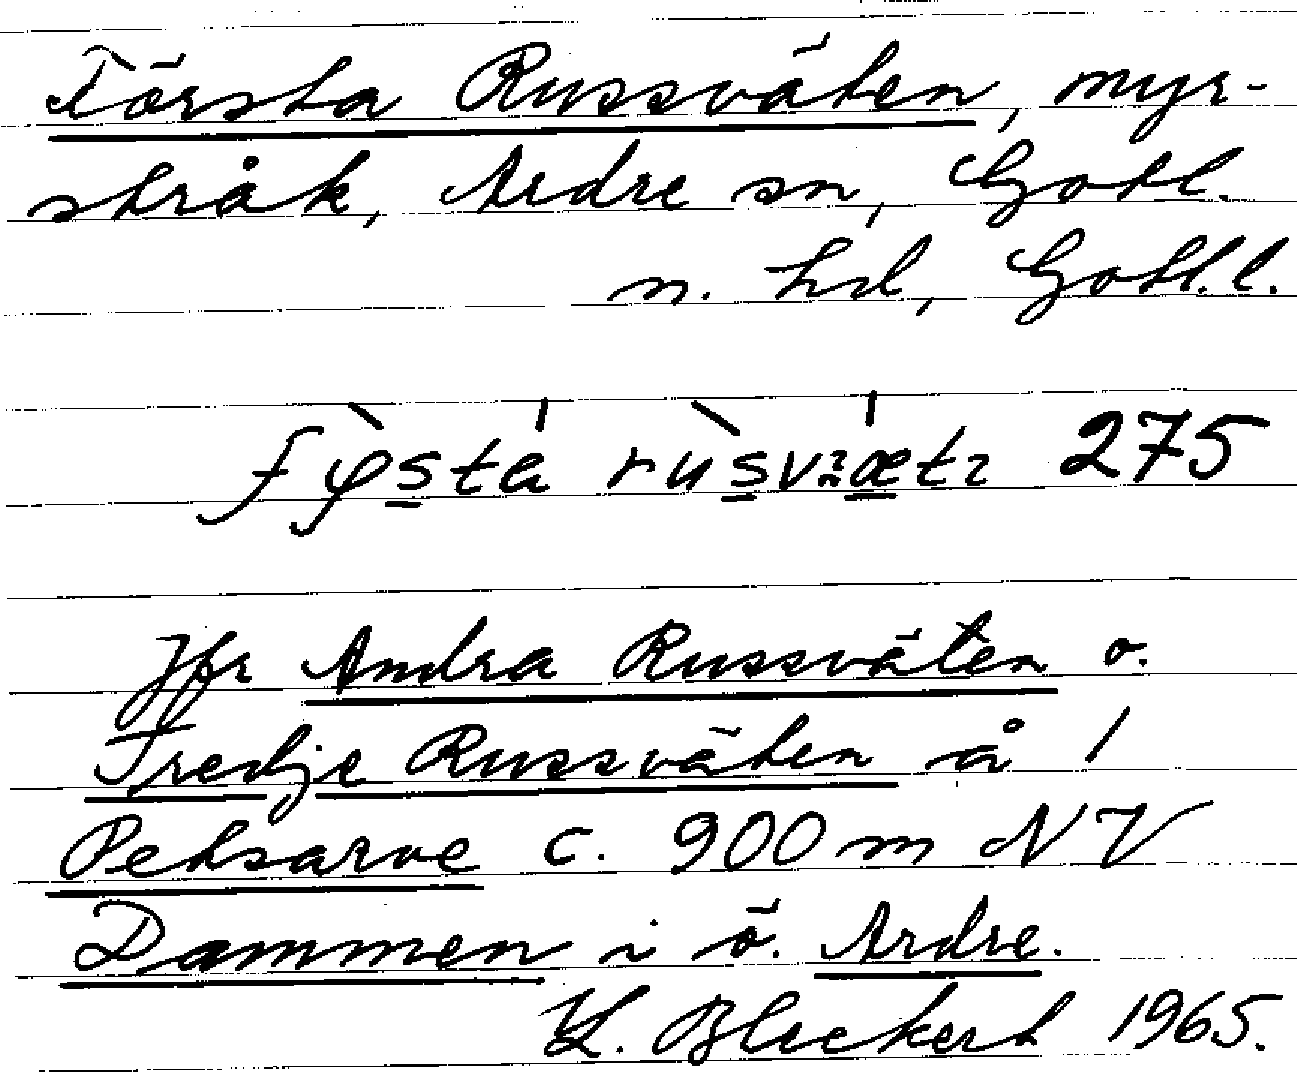 Första Russväten, myr-
stråk, Ardre sn, Gotl.
n. hd, Gotl. l.
275
Jfr Andra Russväten o.
Tredje Russväten å /
Petsarve c. 900 m NV
Dammen i ö. Ardre.
L. Bleckert 1965.